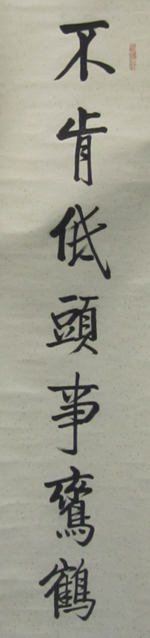 不肯低頭事鸞鶴